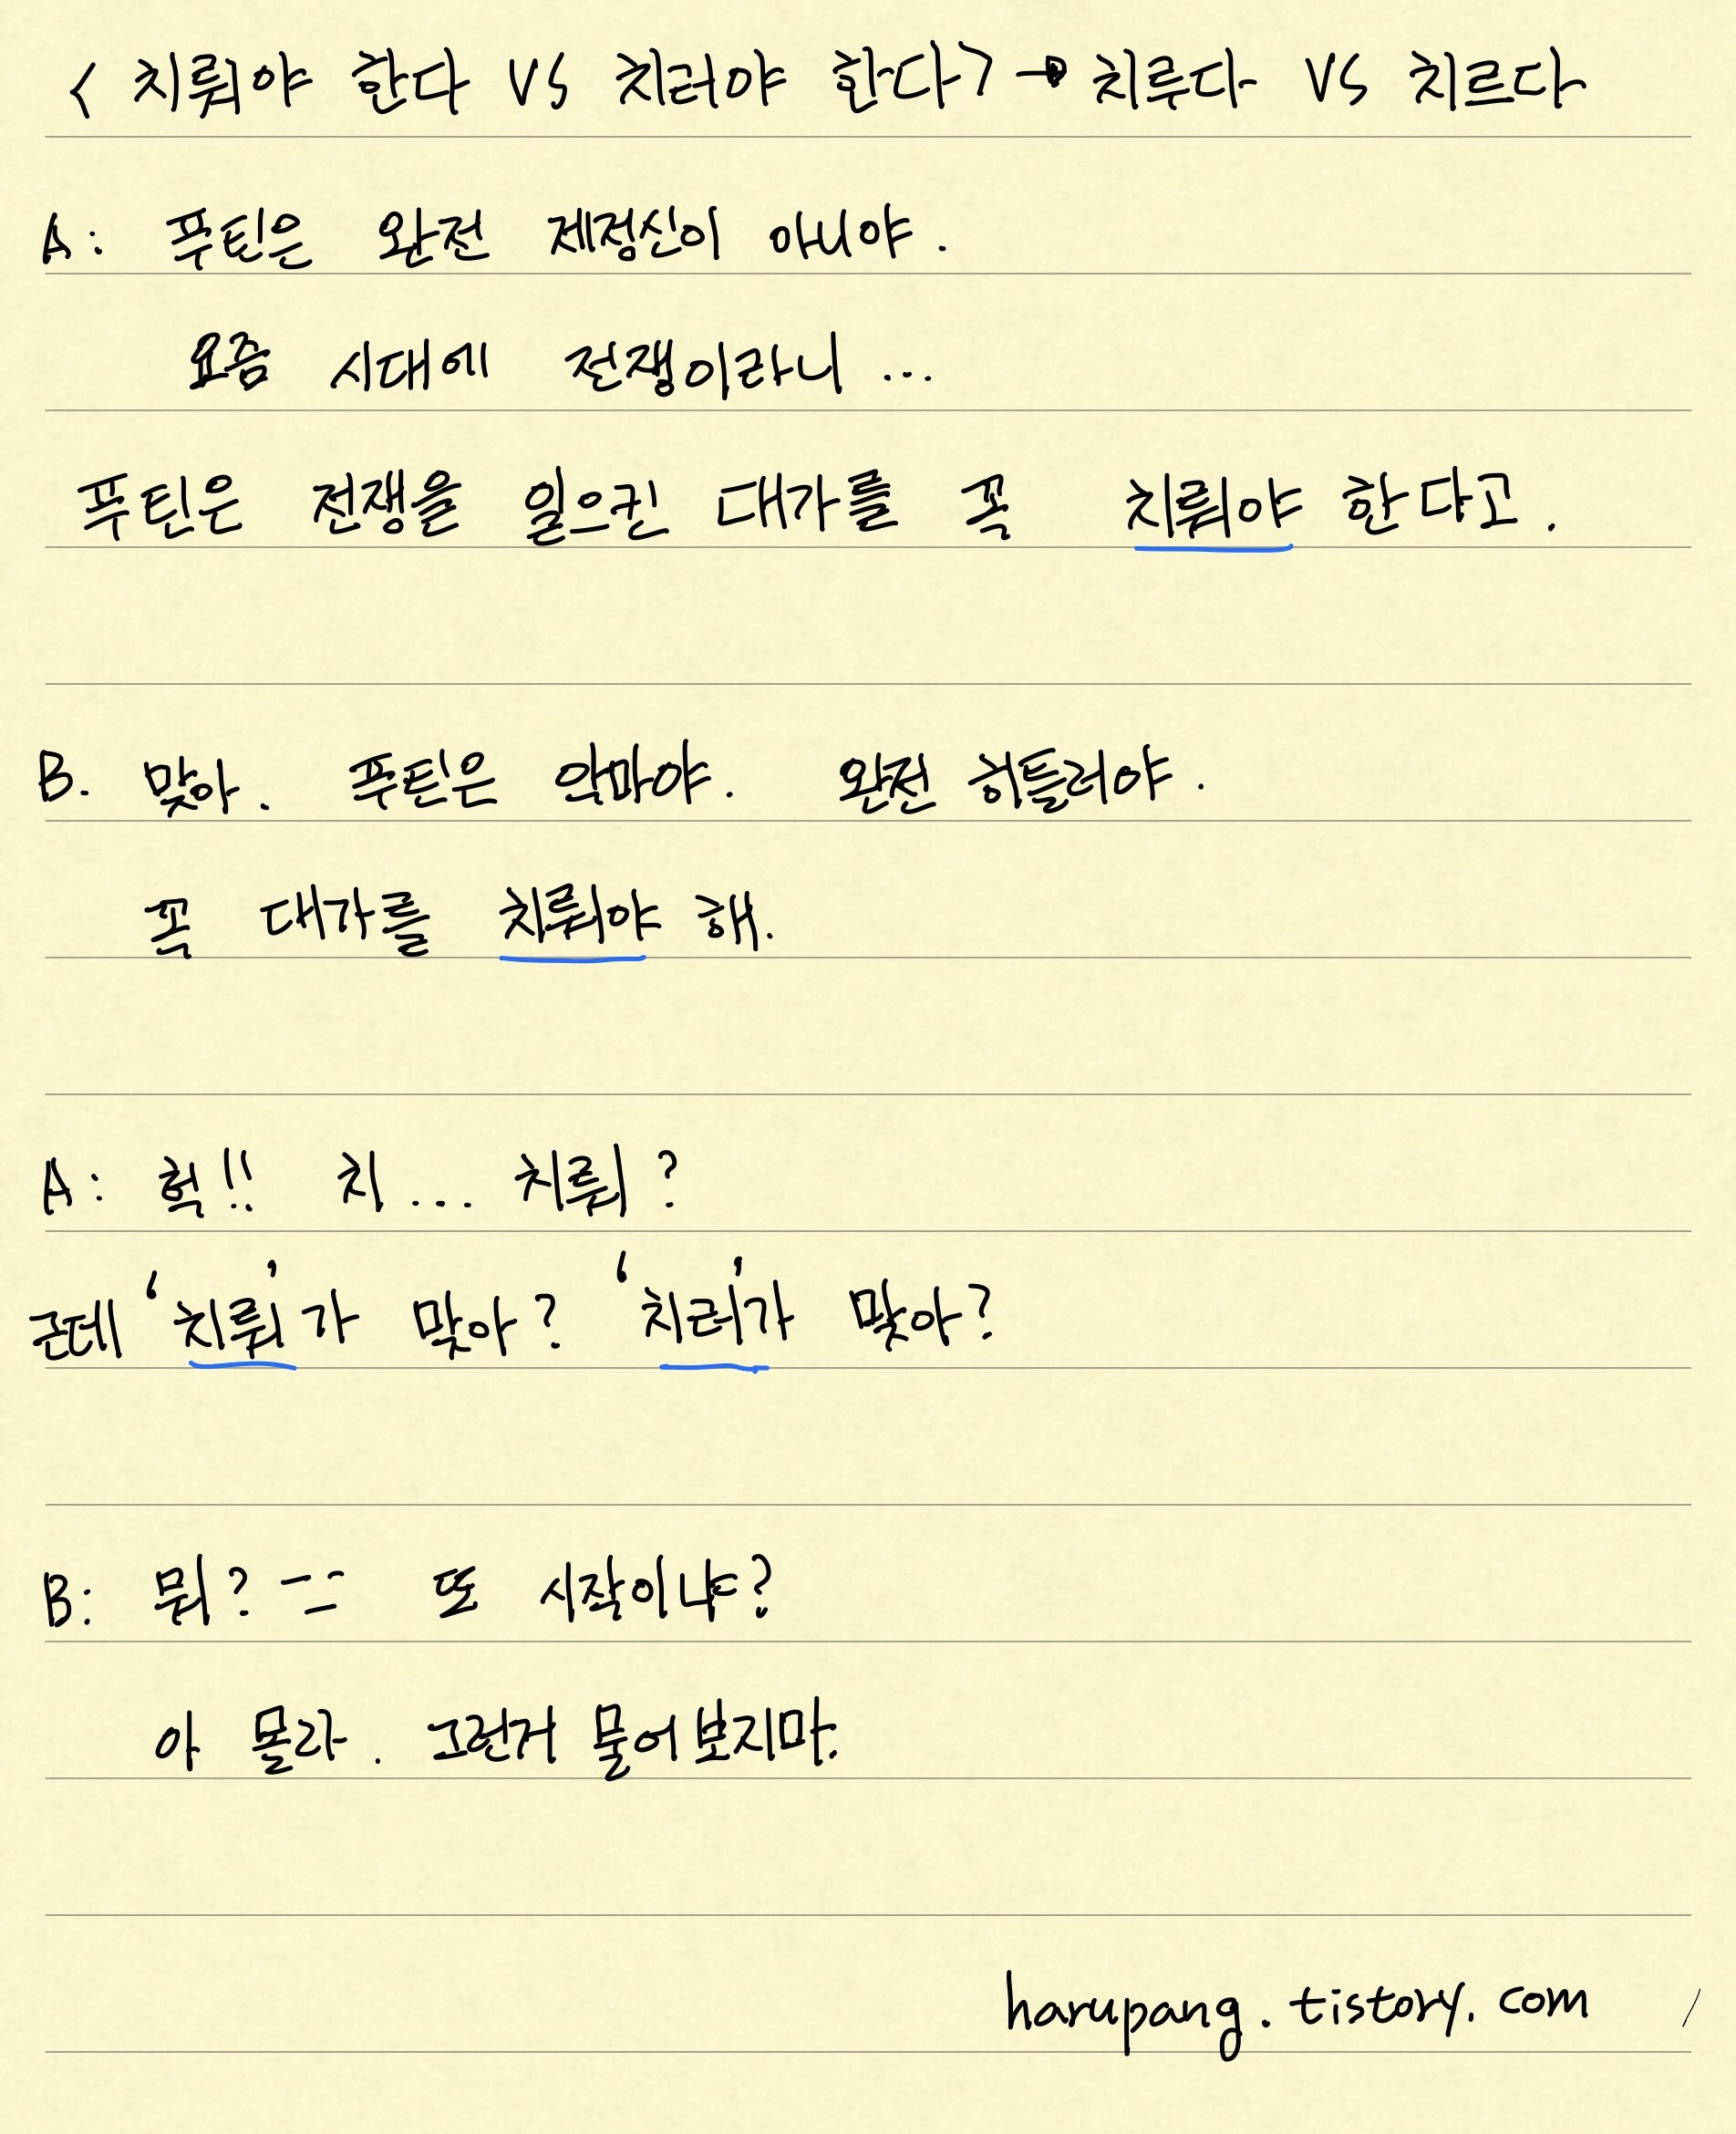 < 치뤄야 한다 VS 치러야 한다> → 치루다 VS 치르다
A: 푸틴은 완전 제정신이 아니야.
요즘 시대에 전쟁이라니 ...
푸틴은 전쟁을 일으킨 대가를 꼭 치뤄야 한다고.
B. 맞아. 푸틴은 악마야. 완전 히틀러야.
꼭 대가를 치뤄야 해.
A: 헉!! 치... 치뤄?
근데 '치뤄'가 맞아? '치러'가 맞아?
B: 뭐? -_- 또 시작이냐?
아 몰라. 그런거 물어보지마.
harupang.tistory.com